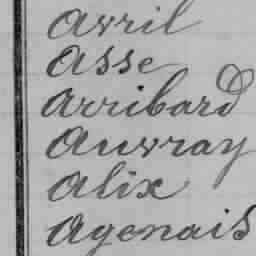 Avril
Asse
Arribard
Auvray
Alix
Agenais